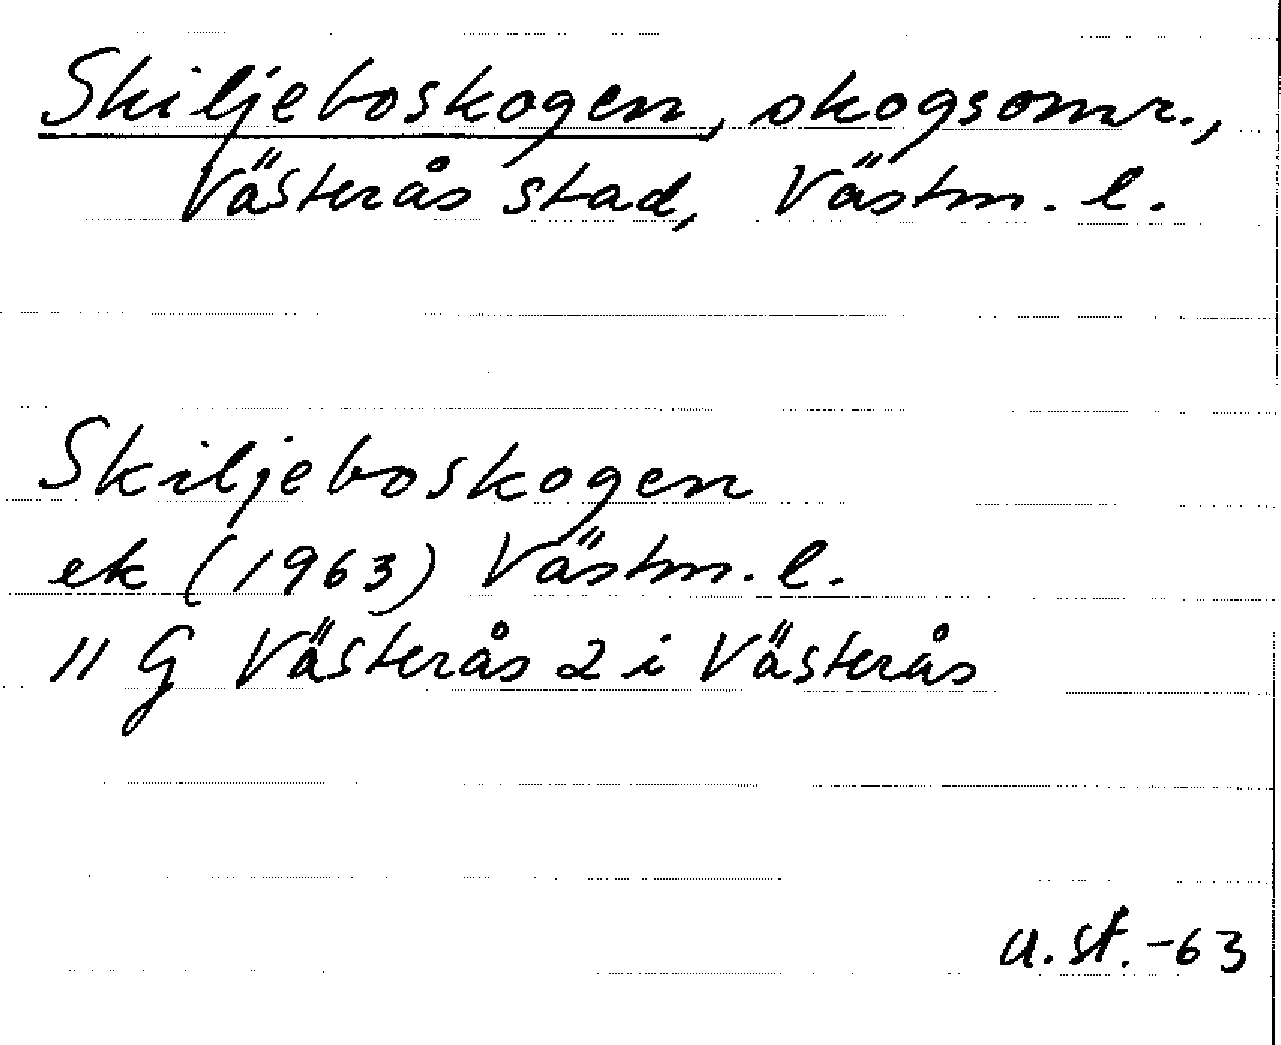 Skiljeboskogen, skogsomr.,
Västerås stad, Västm. l.
Skiljeboskogen
ek (1963) Västm. l.
11 G Västerås 2 i Västerås
U. St. -63